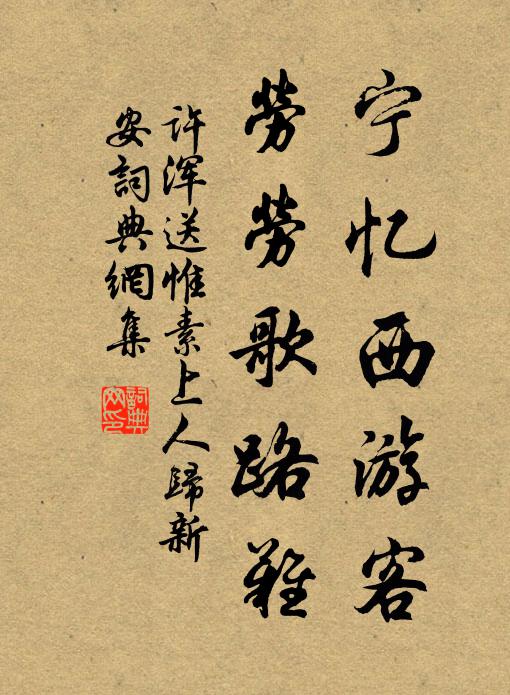 宁忆西游客
劳劳歌路难
许浑送惟素上人歸新
安詞典網集
詞典
网印